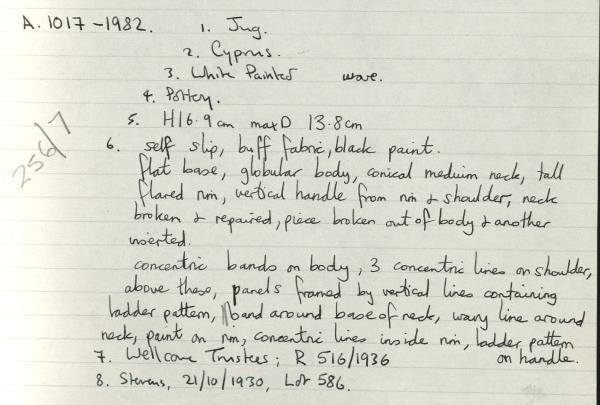 A.1017-1982. 1. Jug.
2. Cyprus.
3. White Painted ware.
4. Pottery.
5. H16.9cm maxD 13.8cm
256/7
6. self slip, buff fabric, black paint.
flat base, globular body, conical medium neck, tall
flared rim, vertical handle from rim & shoulder, neck
broken & repaired, piece broken out of body & another
inserted.
concentric bands on body, 3 concentric lines on shoulder,
above these, panels framed by vertical lines containing
ladder pattern, band around base of neck, wavy line around
neck, paint on rim, concentric lines inside rim, ladder pattern
on handle.
7. Wellcome Trustees; R 516/1936
8. Stevens, 21/10/1930, Lot 586.